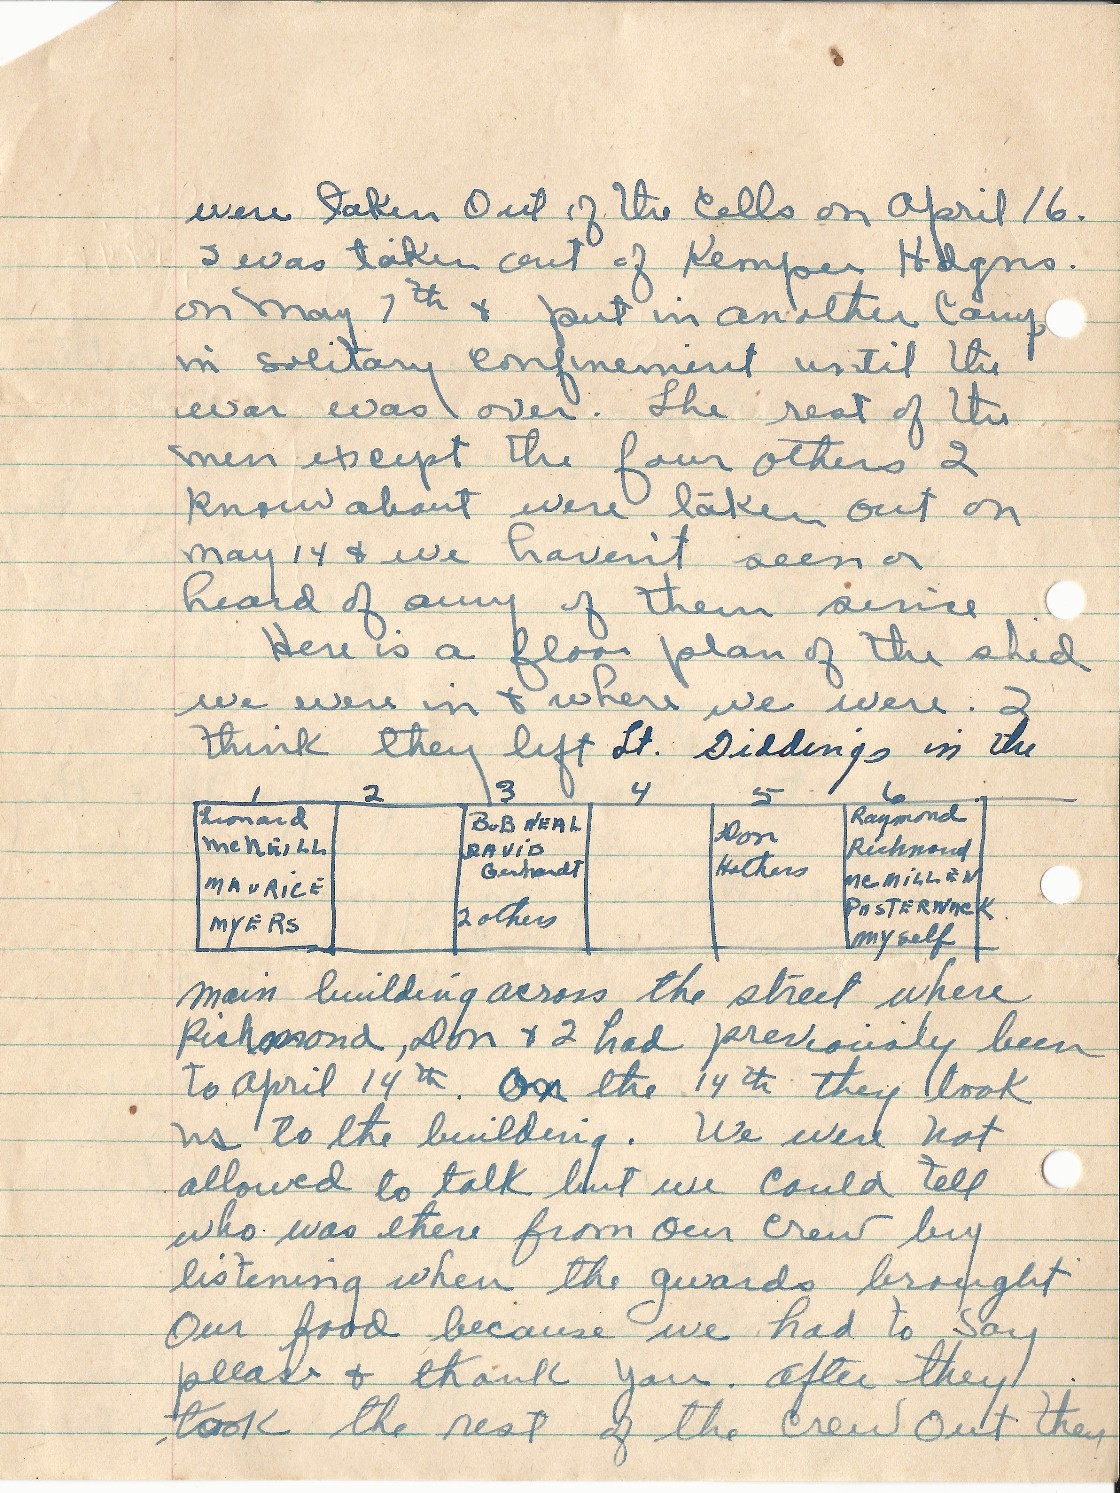 were taken Out of the Cells on April 16.
I was taken out of Kemper Hdqns.
on May 7th & put in another Camp
in solitary confinement until the
war was over. The rest of the
men except the four others I
know about were taken out on
May 14 & we haven't seen or
heard of any of them since
Here is a floor plan of the shed
we were in & where we were. I
think they left Lt. Giddings in the
1 2 3 4 5 6
Leonard
McNEILL
MAURICE
MYERS
BOB NEAL
DAVID
Gerhardt
2 others
Don
Hathers
Raymond
Richmond
McMILLEN
PASTERNACK
myself
main building across the street where
Richmond, Don & I had previously been
to April 14th. On the 14th they took
us to the building. We were not
allowed to talk but we could tell
who was there from our crew by
listening when the guards brought
Our food because we had to Say
please & thank you. After they
took the rest of the crew Out they